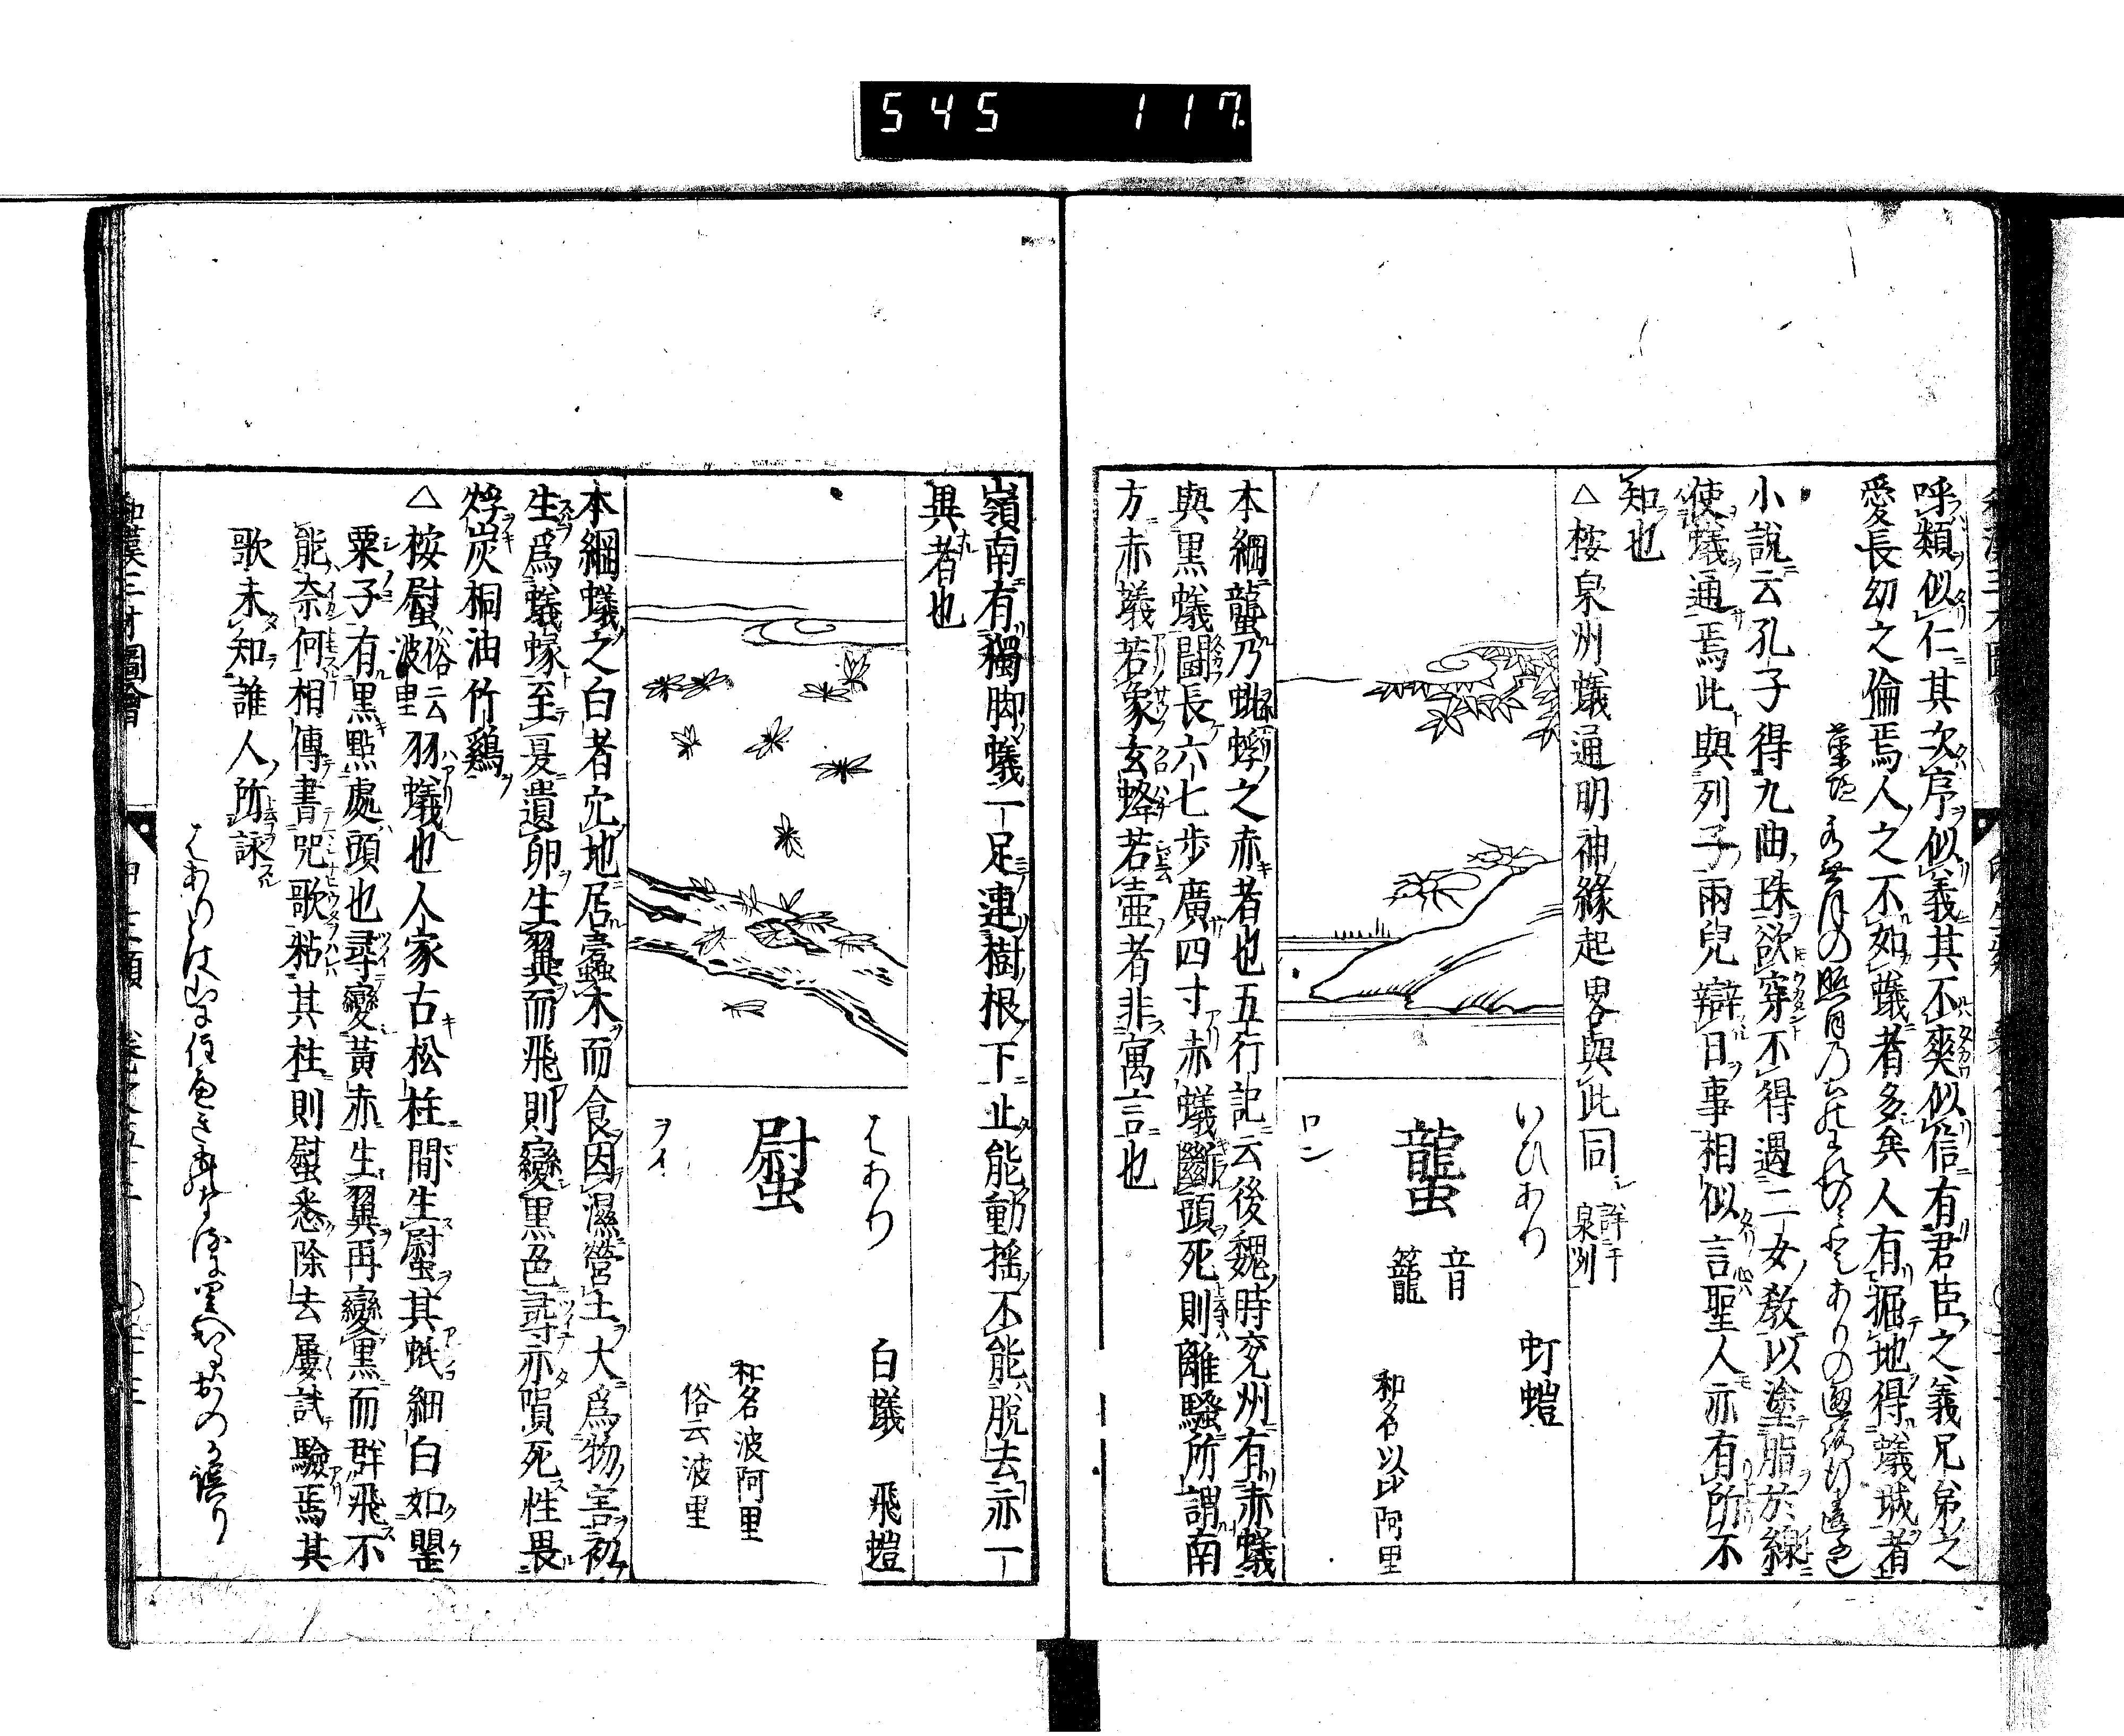 545 117
呼類似仁其次序似義其不爽似信有君臣之義兄弟之
愛長幼之倫焉人之不如蟻者多矣人有掘地得蟻城者
小說云孔子得九曲珠欲穿不得遇二女敎以塗脂於線
使蟻通焉此與列子兩兒辯日事相似言聖人亦有所不
知也
△桉泉州蟻通明神緣起畧與此同
詳于
泉州
いひあり
虰螘
蠪
音
籠
和名以比阿里
ロン
本綱蠪乃蚍蜉之赤者也五行記云後魏時兗州有赤蟻
與黑蟻鬪長六七步廣四寸赤蟻斷頭死則離騷所謂南
方赤蟻若象玄蜂若壷者非寓言也
嶺南有獨脚蟻一足連樹根下止能動揺不能脫去亦一
異者也
はあり
白蟻 飛螘
螱
和名波阿里
俗云波里
ヲイ
本綱蟻之白者穴地居蠹木而食因濕營土大爲物害初
生爲蟻蝝至夏遺卵生翼而飛則變黑色尋亦隕死性畏
烰炭桐油竹鷄
△桉螱
俗云
波里
羽蟻也人家古松柱間生螱其蚳細白如罌
粟子有黑點處頭也尋變黃赤生翼再變黑而群飛不
能奈何相傳書咒歌粘其柱則螱悉除去屢試驗焉其
歌未知誰人所詠
和漢三才圖會